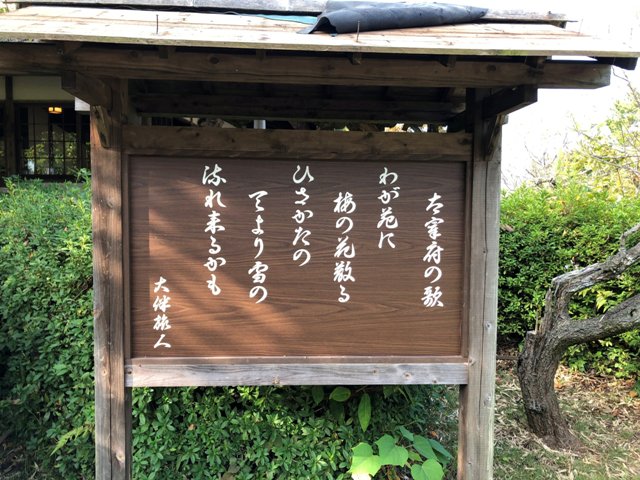 太宰府の歌
わが苑に
梅の花散る
ひさかたの
天より雪の
流れ来るかも
大伴旅人